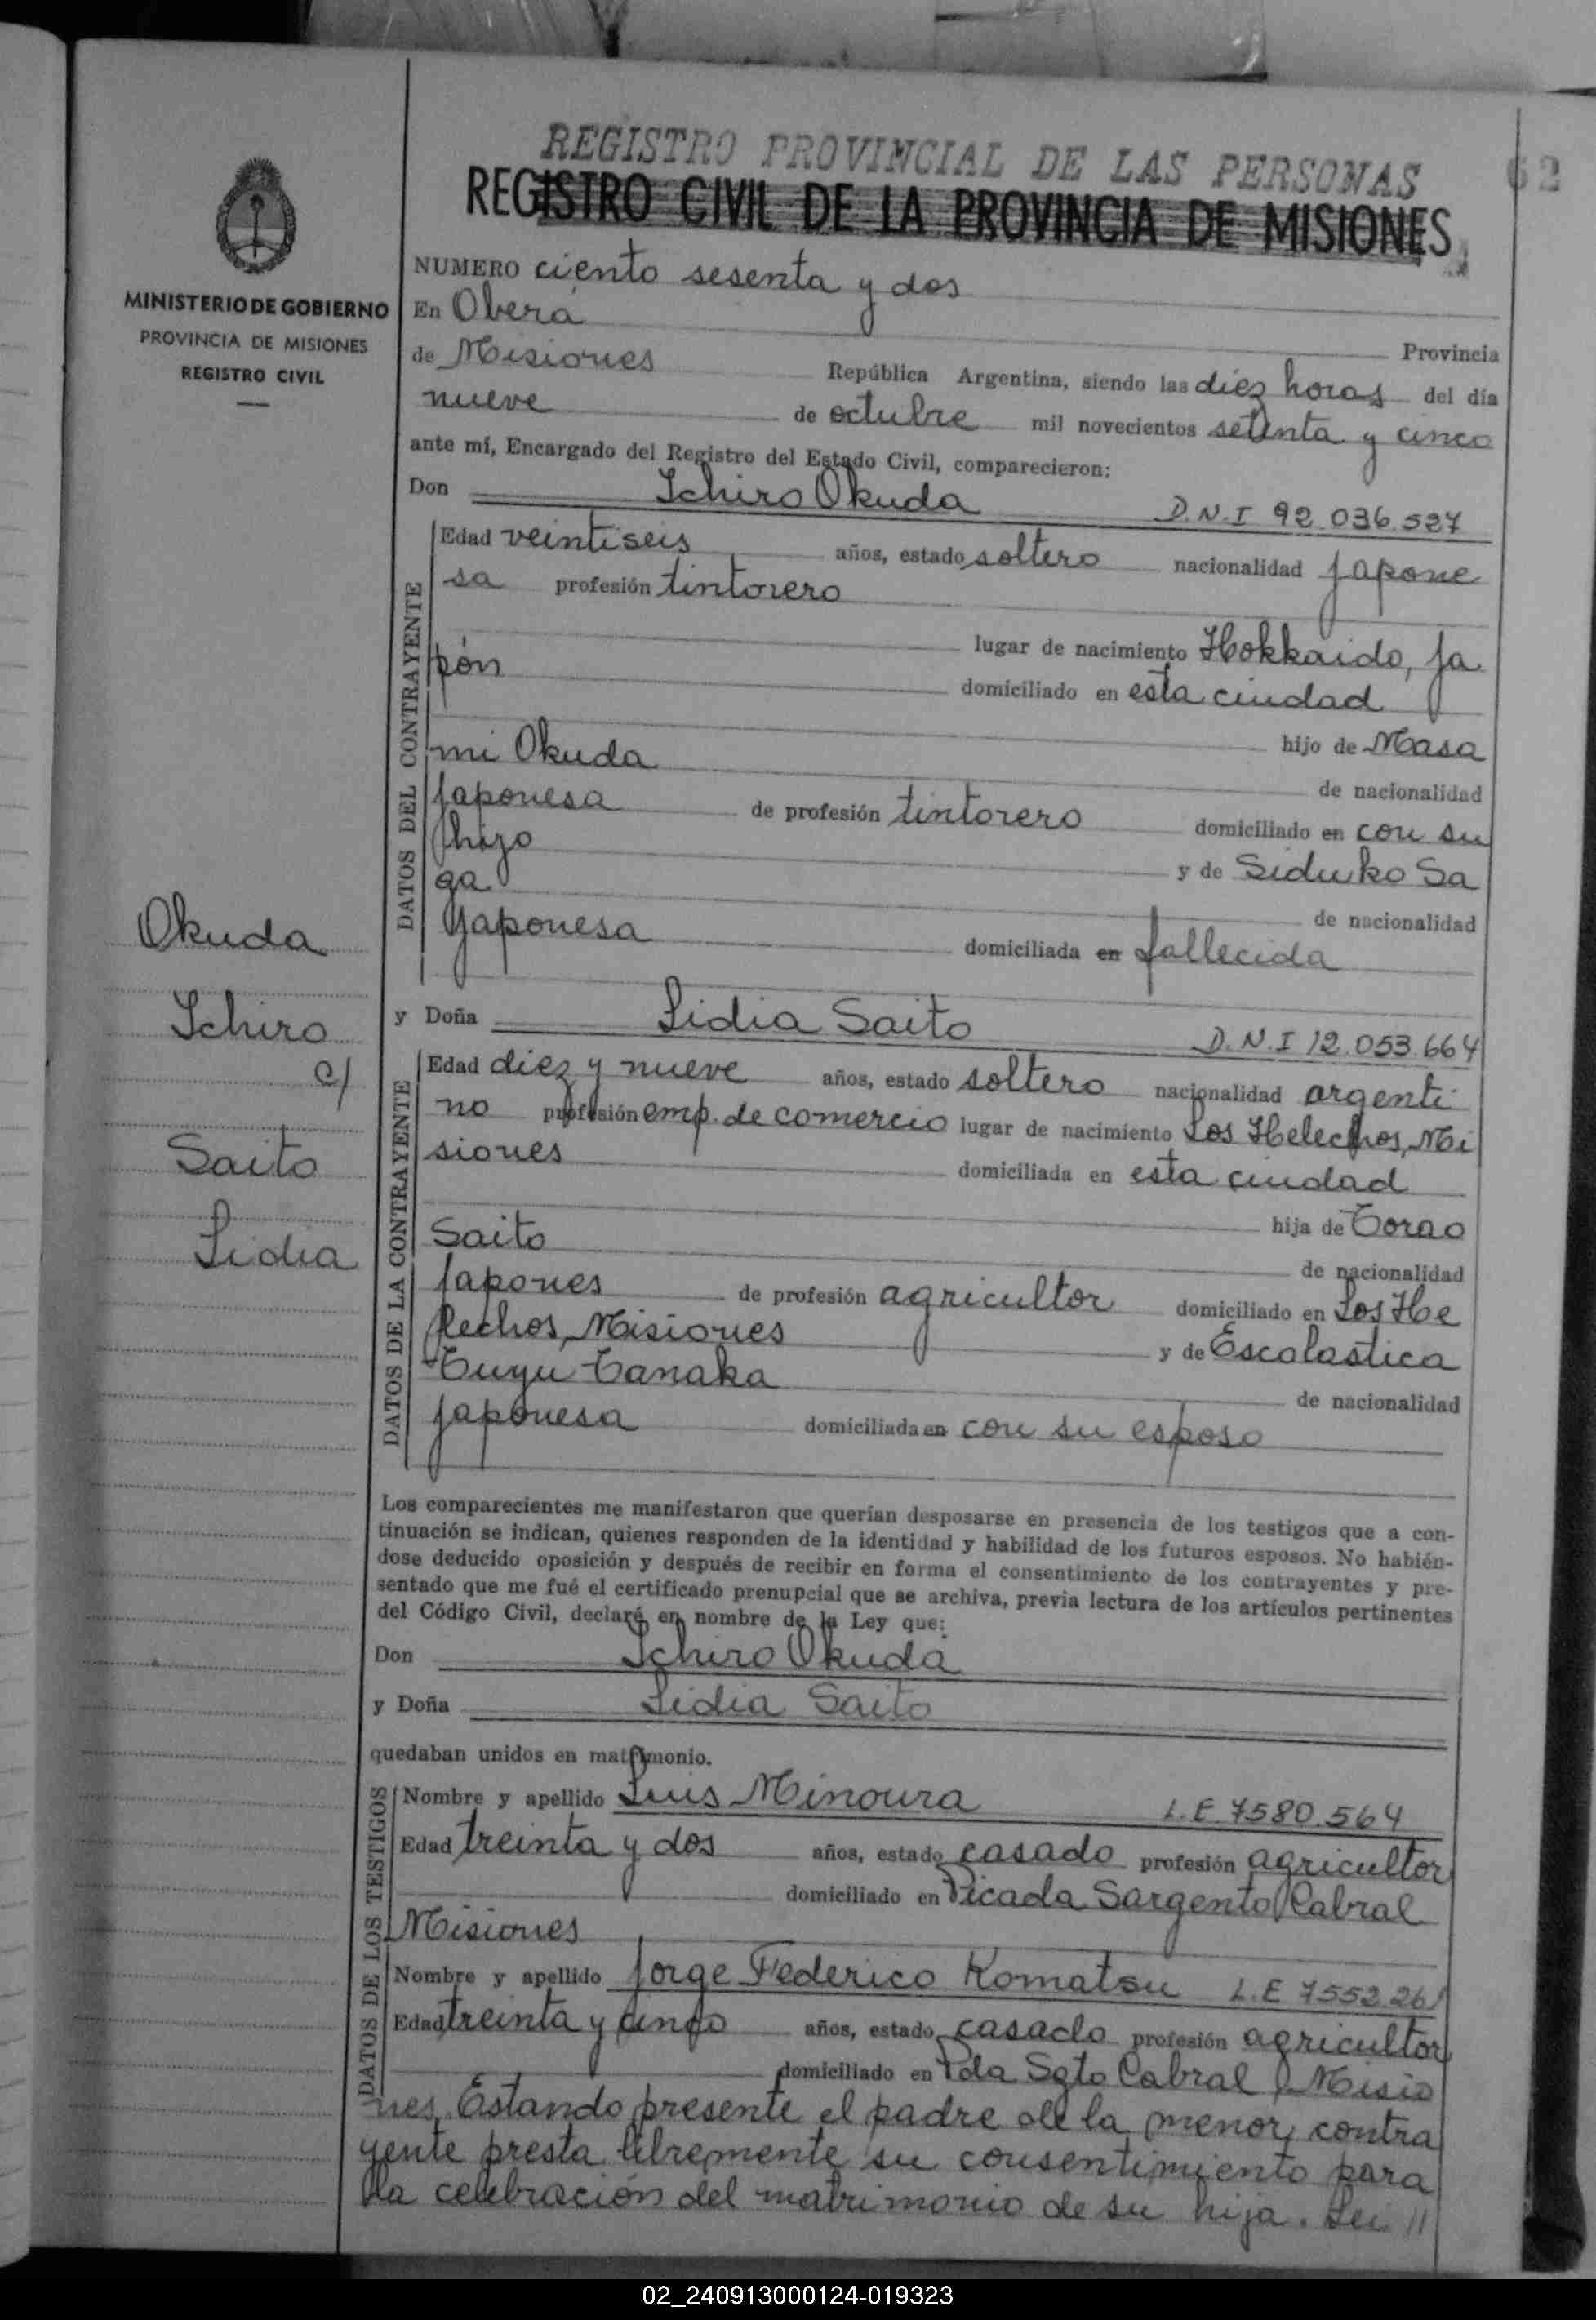 REGISTRO PROVINCIAL DE LAS PERSONAS
62
REGISTRO CIVIL DE LA PROVINCIA DE MISIONES
MINISTERIO DE GOBIERNO
PROVINCIA DE MISIONES
REGISTRO CIVIL
NUMERO ciento sesenta y dos
En Oberá Provincia
de Misiones República Argentina, siendo las diez horas del día
nueve de octubre mil novecientos setenta y cinco
ante mí, Encargado del Registro del Estado Civil, comparecieron:
Don Ichiro Okuda D.N.I 92.036.527
DATOS DEL CONTRAYENTE
Edad veintiseis años, estado soltero nacionalidad japone
sa profesión tintorero
lugar de nacimiento Hokkaido, Ja
pón domiciliado en esta ciudad
hijo de Masa
mi Okuda de nacionalidad
japonesa de profesión tintorero domiciliado en con su
hijo y de Siduko Sa
ga de nacionalidad
japonesa domiciliada en fallecida
Okuda
Ichiro
c/
Saito
Lidia
y Doña Lidia Saito D.N.I 12.053.664
DATOS DE LA CONTRAYENTE
Edad diez y nueve años, estado soltero nacionalidad argenti
no profesión emp. de comercio lugar de nacimiento Los Helechos, Mi
siones domiciliada en esta ciudad
hija de Torao
Saito de nacionalidad
japones de profesión agricultor domiciliado en Los He
lechos, Misiones y de Escolastica
Tuyu Tanaka de nacionalidad
japonesa domiciliada en con su esposo
Los comparecientes me manifestaron que querían desposarse en presencia de los testigos que a con-
tinuación se indican, quienes responden de la identidad y habilidad de los futuros esposos. No habién-
dose deducido oposición y después de recibir en forma el consentimiento de los contrayentes y pre-
sentado que me fué el certificado prenupcial que se archiva, previa lectura de los artículos pertinentes
del Código Civil, declaré en nombre de la Ley que:
Don Ichiro Okuda
y Doña Lidia Saito
quedaban unidos en matrimonio.
DATOS DE LOS TESTIGOS
Nombre y apellido Luis Minoura L.E 7580.564
Edad treinta y dos años, estado casado profesión agricultor
domiciliado en Picada Sargento Cabral
Misiones
Nombre y apellido Jorge Federico Komatsu L.E 7552.261
Edad treinta y cinco años, estado casado profesión agricultor
domiciliado en Pda Sgto Cabral, Misio
nes. Estando presente el padre de la menor contra
yente presta libremente su consentimiento para
la celebración del matrimonio de su hija. Lei //
02_240913000124-019323